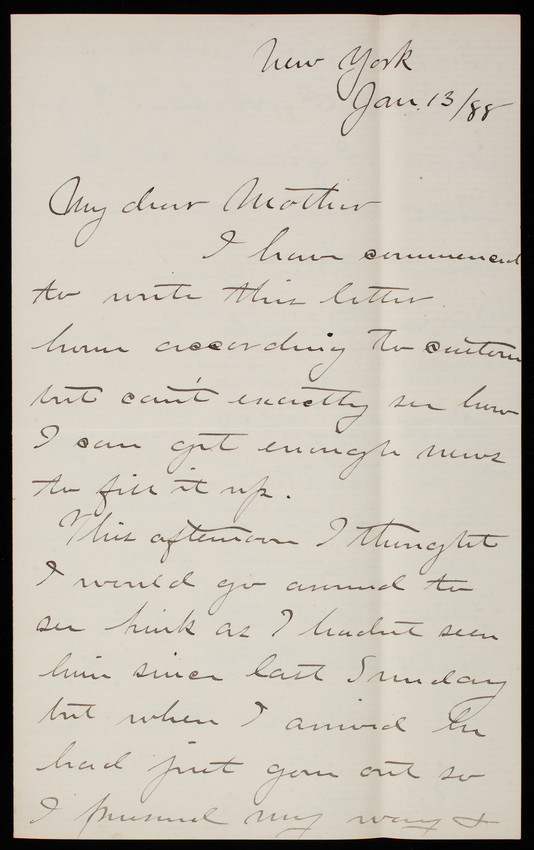 New York
Jan. 13/88
My dear Mother
I have commenced
to write this letter
home according to custom
but can't exactly see how
I can get enough news
to fill it up.
This afternoon I thought
I would go around to
see hink as I hadn't seen
him since last Sunday
but when I arrived he
had just gone out so
I pursued my way &